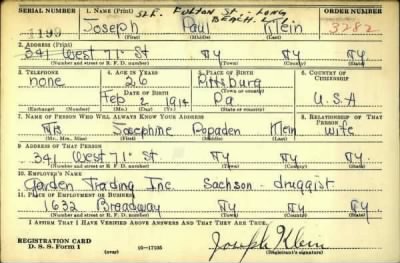 SERIAL NUMBER 1. NAME (Print) ORDER NUMBER
521. FULTON ST. LONG BEACH. L.I.
1199 Joseph Paul Klein 3282
(First) (Middle) (Last)
2. ADDRESS (Print)
341 West 71st St Ny Ny
(Number and street or R. F. D. number) (Town) (County) (State)
3. TELEPHONE 4. AGE IN YEARS 5. PLACE OF BIRTH 6. COUNTRY OF CITIZENSHIP
none 26 Pittsburg
DATE OF BIRTH (Town or county)
Feb 2 1914 Pa U.S.A
(Exchange) (Number) (Mo.) (Day) (Yr.) (State or country)
7. NAME OF PERSON WHO WILL ALWAYS KNOW YOUR ADDRESS 8. RELATIONSHIP OF THAT PERSON
Josephine Popaden Klein wife
(Mr., Mrs., Miss) (First) (Middle) (Last)
9. ADDRESS OF THAT PERSON
341 West 71 St Ny Ny Ny
(Number and street or R. F. D. number) (Town) (County) (State)
10. EMPLOYER'S NAME
Garden Trading Inc. Sachson - druggist
11. PLACE OF EMPLOYMENT OR BUSINESS
1632 Broadway Ny Ny Ny
(Number and street or R. F. D. number) (Town) (County) (State)
I AFFIRM THAT I HAVE VERIFIED ABOVE ANSWERS AND THAT THEY ARE TRUE.
REGISTRATION CARD
D. S. S. Form 1 (over) 16-17105 Joseph Klein
(Registrant's signature)